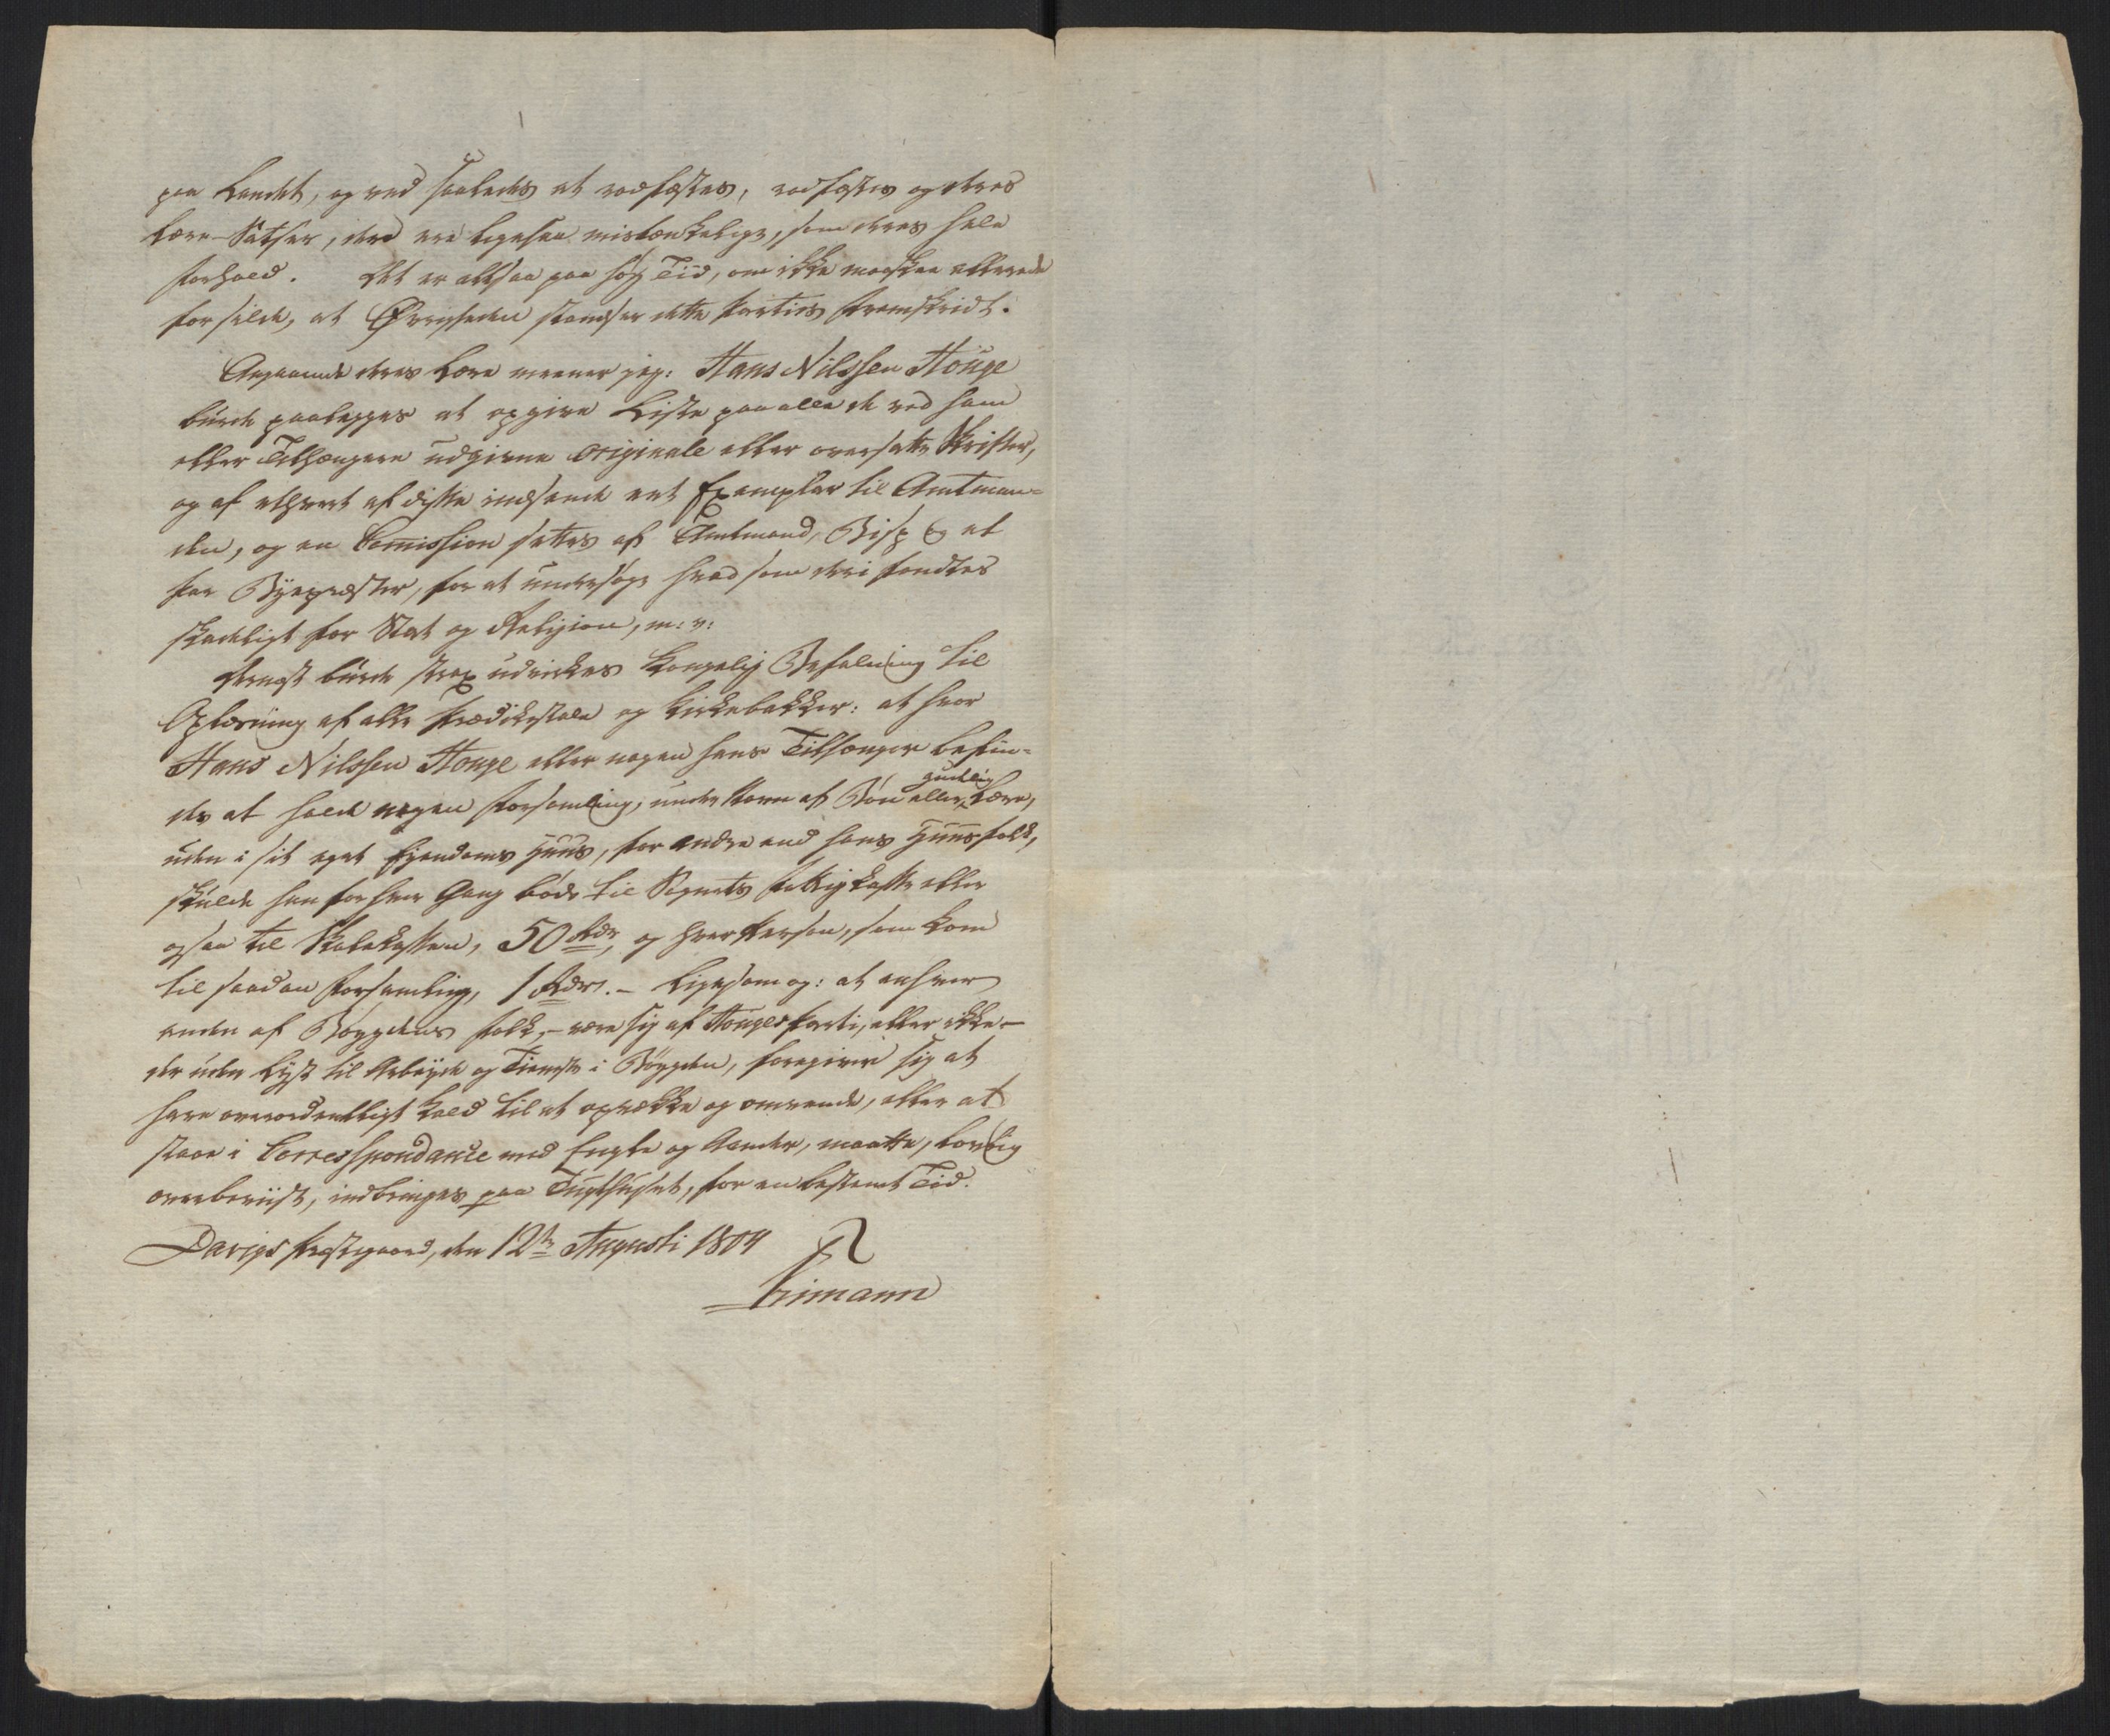 paa Landet, og ved saaledes at rodfæstes, rodfæstes og deres
Lære-Sætser, der ere ligesaa mistænkelige, som deres hele
Forhold. Det er altsaa paa høy Tid, om ikke maaskee allerede
for silde, at Øvrigheden standser dette Parties Fremskridt.
Angaaende deres Lære meener jeg: Hans Nilssen Houge
burde paalegges at opgive Liste paa alle de ved ham
eller Tilhængere udgivne originale eller oversatte Skrifter,
og af ethvert af disse indsende eet Exemplar til Amtman-
den, og en Comission settes af Amtmand, Bisp & et
Par Byepræster, for at undersøge hvad som deri fandtes
skadeligt for Stat og Religion, m: v:
Dernæst burde strax udvirkes Kongelig Befalning til
Oplæsning af alle Prædikestole og Kirkebakker: at hvor
Hans Nilssen Houge eller nogen hans Tilhænger befin-
des at holde nogen Forsamling, under Navn af Bøn eller gudelig Lære,
uden i sit eget Ejendoms Huus, for andre end hans Huusfolk,
skulde han for hver Gang bøde til Sognets Fattigkasse eller
ogsaa til Skolekassen, 50 Rdr, og hver Person, som kom
til saadan Forsamling, 1 Rdr. - Ligesom og: at enhver
anden af Bøygdens Folk, - være sig af Houges Parti, eller ikke -
der uden Lyst til Arbeyde og Tieneste i Bøygden, foregiver sig at
have overordentligt Kald til at opvække og omvende, eller at
staae i Corresspondance med Engle og Aander, maatte, lovlig
overbeviist, indbringes paa Tugthuset, for en bestemt Tid.
Davigs Præstegaard, den 12te Augusti 1804
Krimann